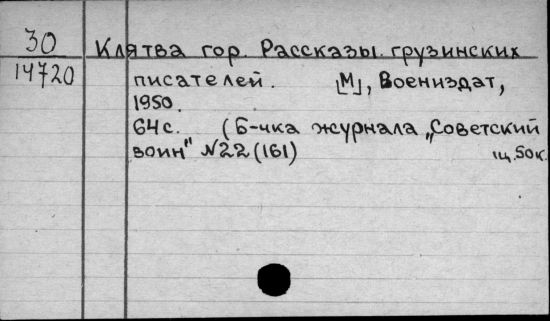 30
14720
Клятва гор. Рассказы грузинских
писателей. [М], Воениздат,
1950.
64с. (Б-чка журнала „Советский
воин" №22(161) ц.50к.